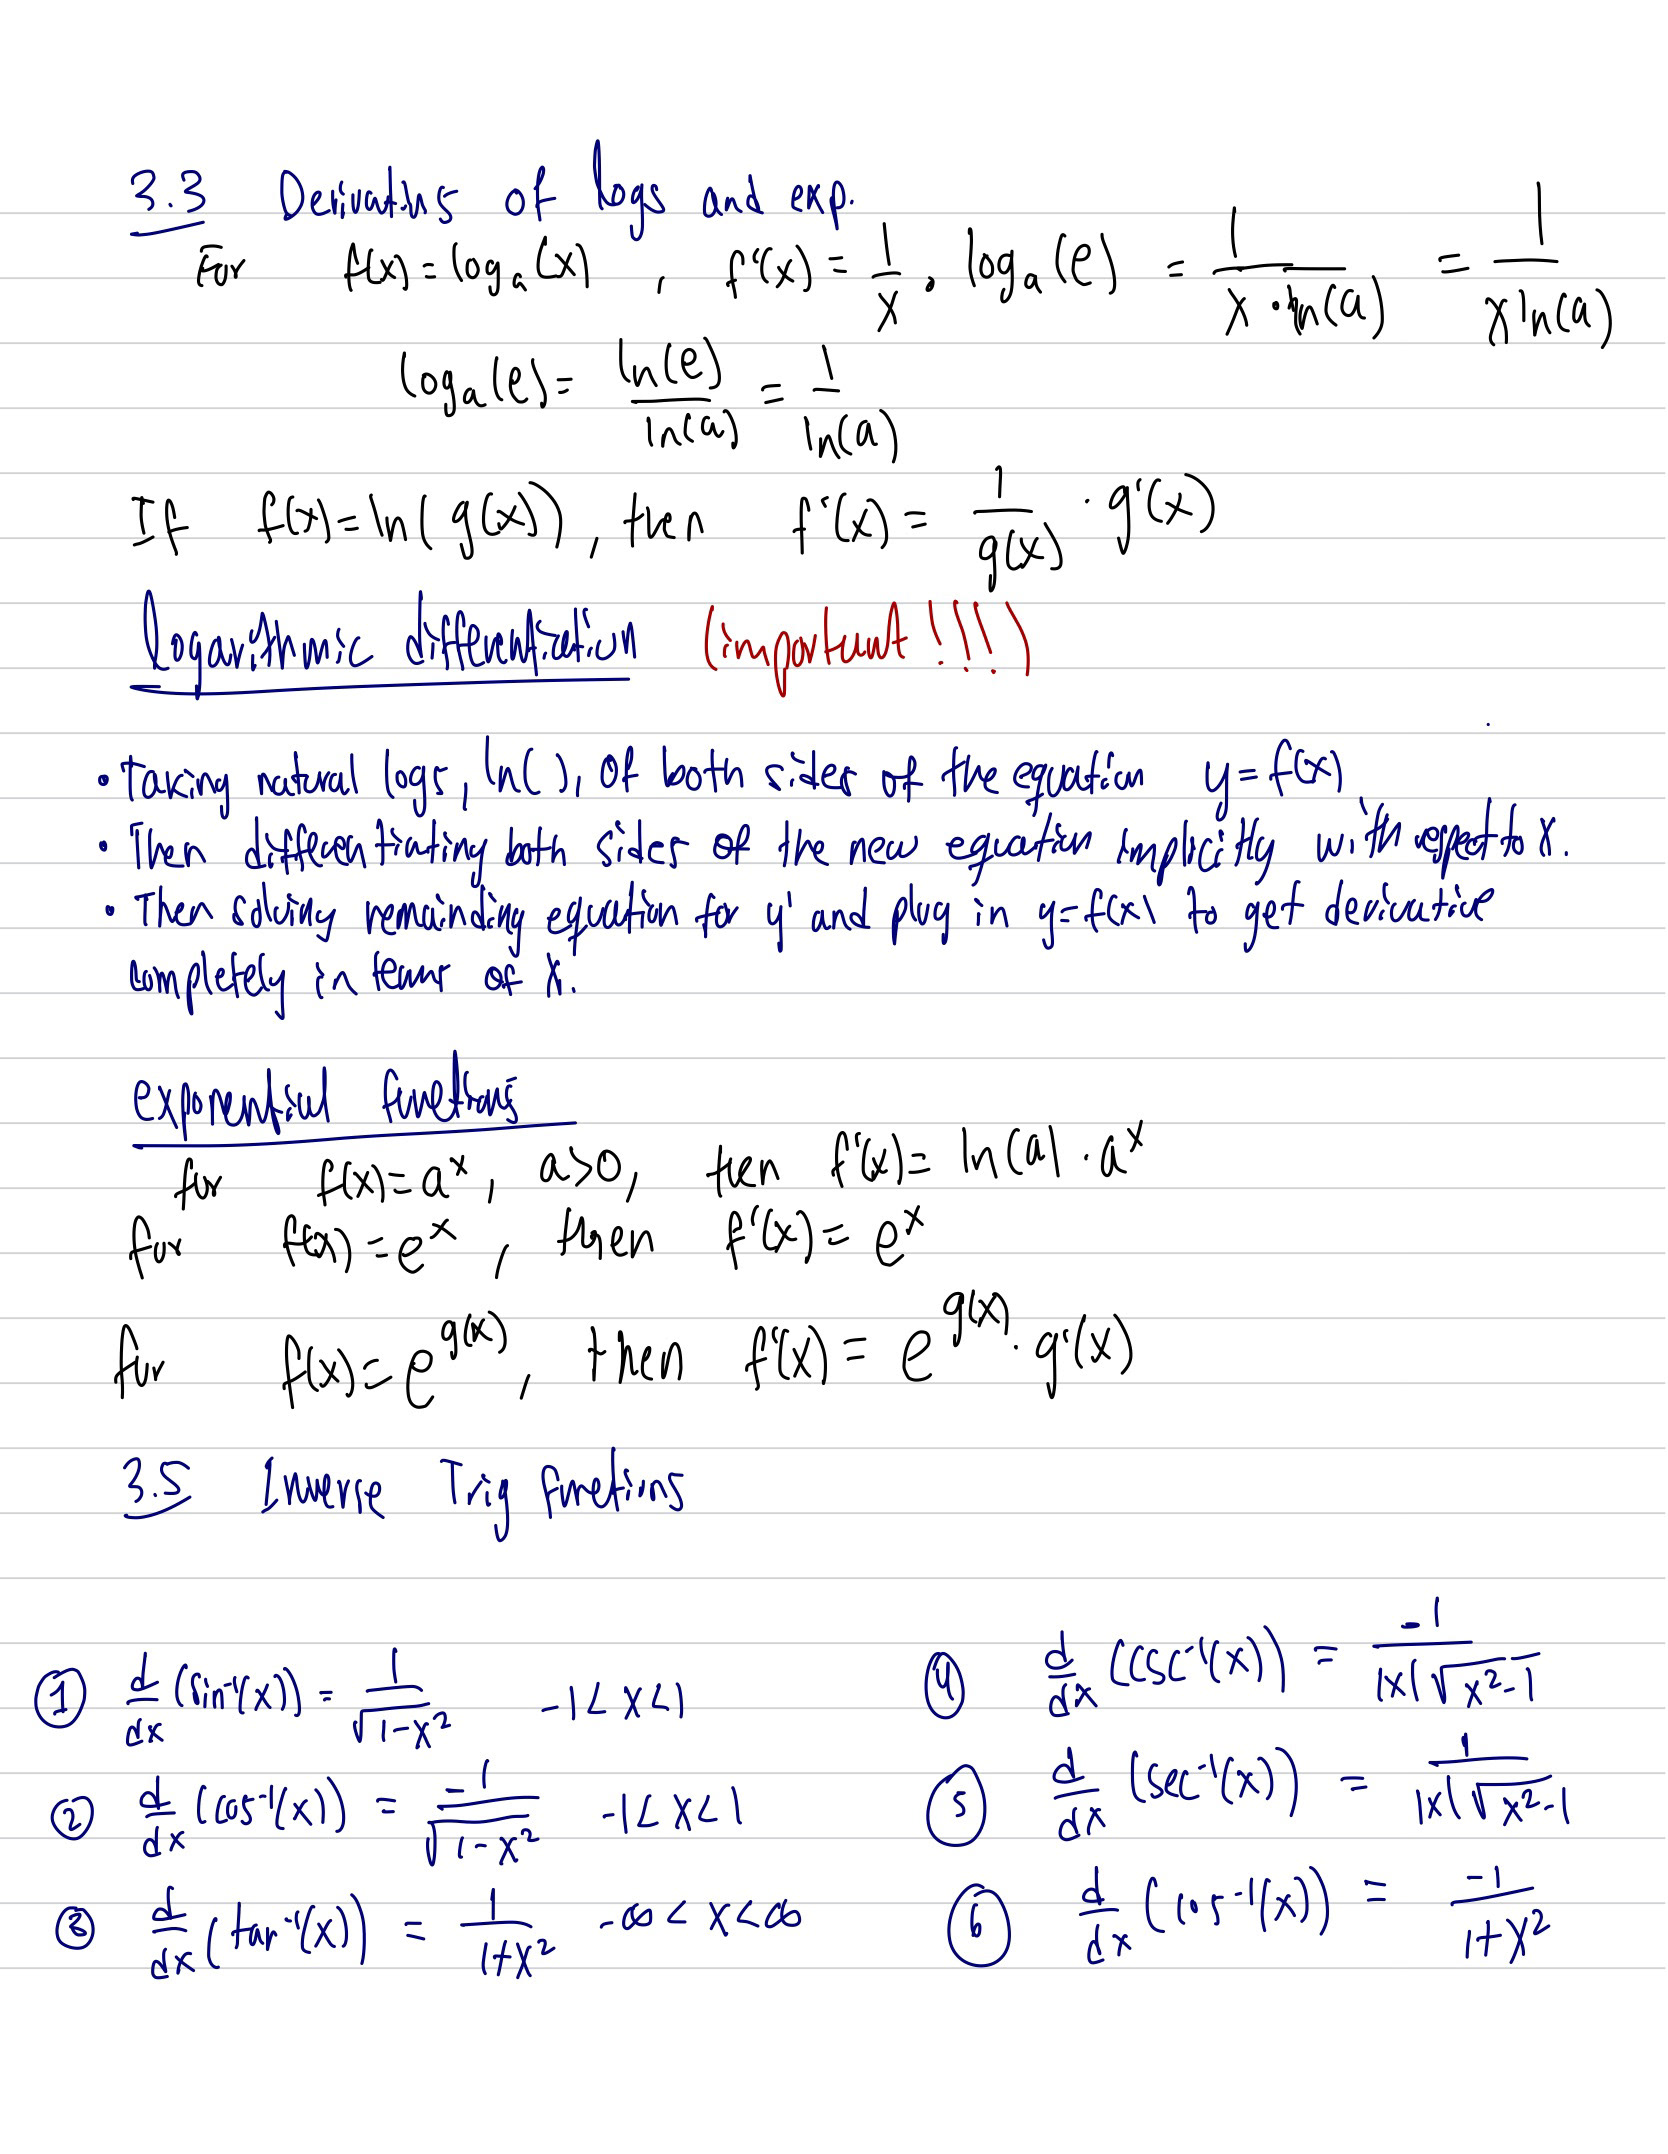 3.3 Derivatives of logs and exp.
For f(x) = log_a(x) , f'(x) = 1/x · log_a(e) = 1/(x · ln(a)) = 1/(x ln(a))
log_a(e) = ln(e)/ln(a) = 1/ln(a)
If f(x) = ln(g(x)), then f'(x) = 1/g(x) · g'(x)
Logarithmic differentiation (important!!!!)
• Taking natural logs, ln( ), of both sides of the equation y = f(x)
• Then differentiating both sides of the new equation implicitly with respect to x.
• Then solving remainding equation for y' and plug in y=f(x) to get derivative
completely in terms of x.
exponential functions
for f(x) = a^x, a>0, then f'(x) = ln(a) · a^x
for f(x) = e^x, then f'(x) = e^x
for f(x) = e^g(x), then f'(x) = e^g(x) · g'(x)
3.5 Inverse Trig functions
① d/dx (sin⁻¹(x)) = 1/√(1-x²) -1 < x < 1
② d/dx (cos⁻¹(x)) = -1/√(1-x²) -1 < x < 1
③ d/dx (tan⁻¹(x)) = 1/(1+x²) -∞ < x < ∞
④ d/dx (csc⁻¹(x)) = -1/(|x|√(x²-1))
⑤ d/dx (sec⁻¹(x)) = 1/(|x|√(x²-1))
⑥ d/dx (cos⁻¹(x)) = -1/(1+x²)